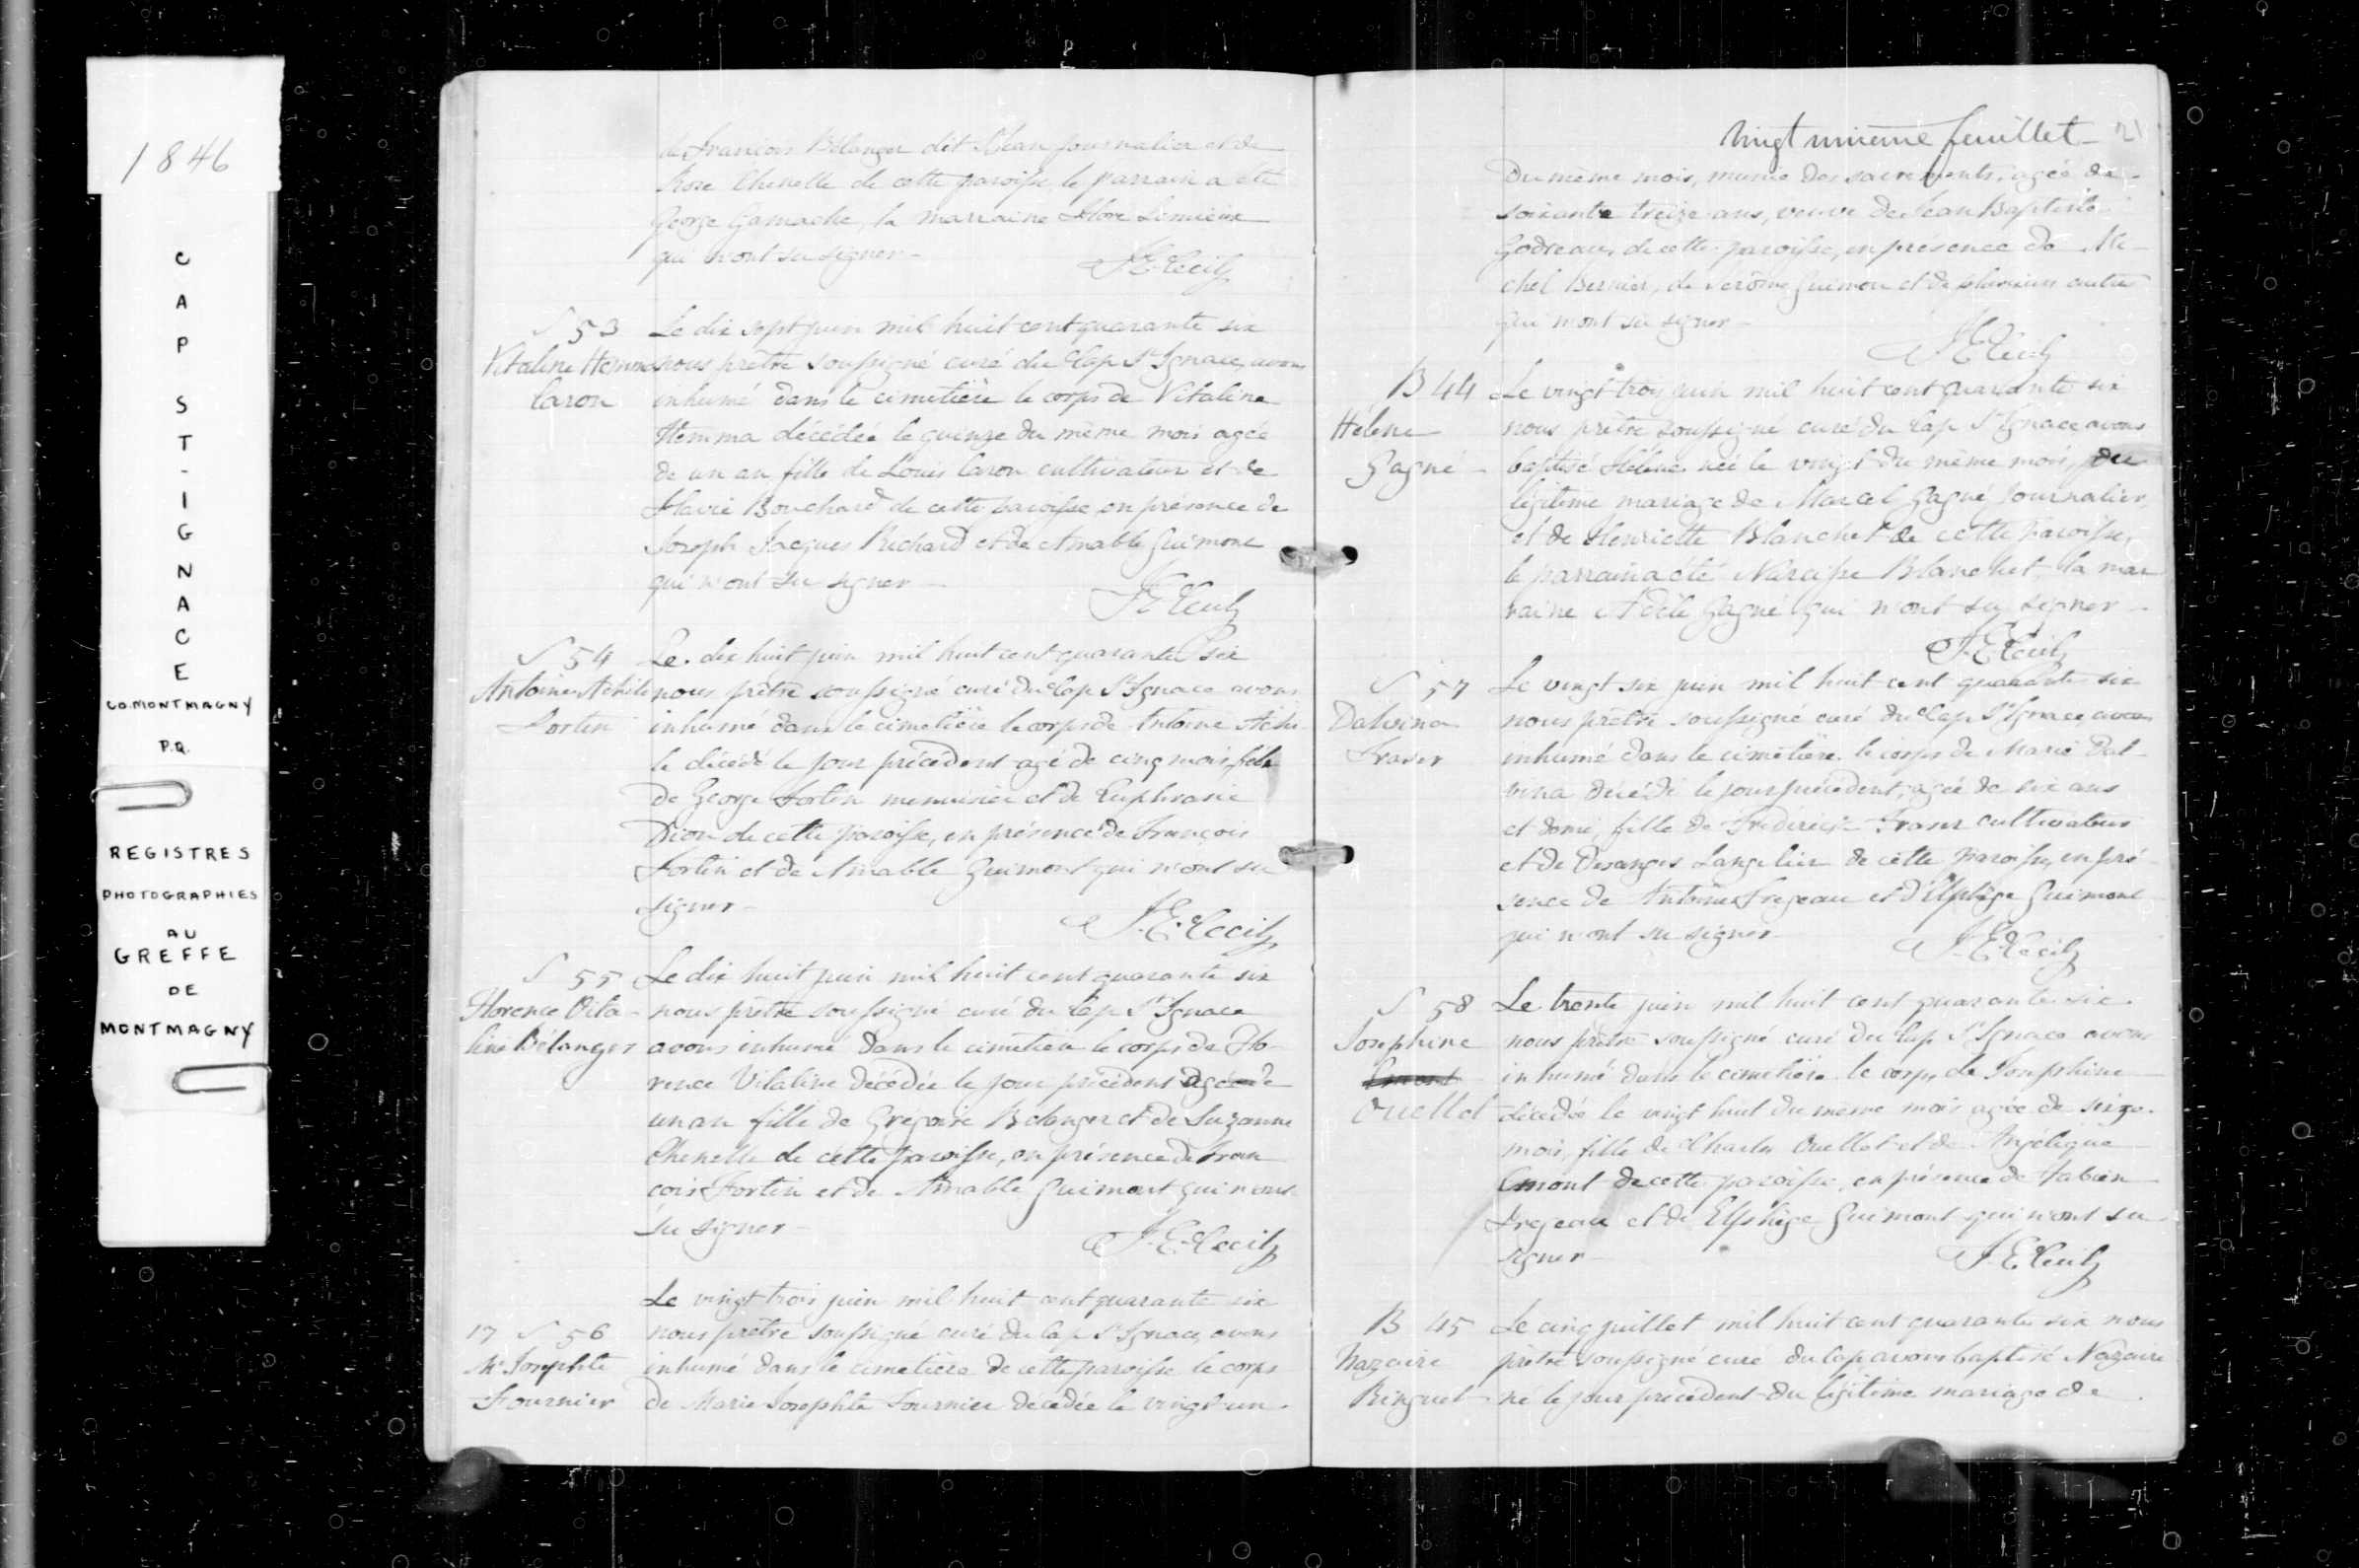 1846
CAP ST-IGNACE
CO. MONTMAGNY
P.Q.
REGISTRES
PHOTOGRAPHIES
AU
GREFFE
DE
MONTMAGNY
de François Bélanger dit Jean journalier et de
Rose Chenelle de cette paroisse, le parrain a été
George Gamache, la marraine Flore Lemieux
qui n'ont su signer
J. E. Cecil
S 53
Vitaline Hemma
Caron
Le dix sept juin mil huit cent quarante six
nous prêtre soussigné curé du Cap St Ignace, avons
inhumé dans le cimetière le corps de Vitaline
Hemma décédée le quinze du même mois agée
de un an fille de Louis Caron cultivateur et de
Flavie Bouchard de cette paroisse en présence de
Joseph Jacques Richard et de Amable Guimont
qui n'ont su signer
J E Cecil
S 54
Antoine Achile
Fortin
Le dix huit juin mil huit cent quarante six
nous prêtre soussigné curé du Cap St Ignace avons
inhumé dans le cimetière le corps de Antoine Achi-
le décédé le jour précédent agé de cinq mois, fils
de George Fortin menuisier et de Euphrasie
Dion de cette paroisse, en présence de François
Fortin et de Amable Guimont qui n'ont su
signer
J. E. Cecil
S 55
Florence Vita-
line Bélanger
Le dix huit juin mil huit cent quarante six
nous prêtre soussigné curé du Cap St Ignace
avons inhumé dans le cimetière le corps de Flo-
rence Vitaline décédée le jour précédent agée de
un an fille de Grégoire Belanger et de Suzanne
Chenelle de cette paroisse, en présence de Fran
çois Fortin et de Amable Guimont qui n'ont
su signer
J. E. Cecil
17 S 56
M. Josephte
Fournier
Le vingt trois juin mil huit cent quarante six
nous prêtre soussigné curé du Cap St Ignace, avons
inhumé dans le cimetière de cette paroisse le corps
de Marie Josephte Fournier décédée le vingt un
vingt unième feuillet 21
Du même mois, munie des sacrements, agée de
soixante treize ans, veuve de Jean Baptiste
Godreau, de cette paroisse, en présence de Mi-
chel Bernier, de Jerôme Guimont et de plusieurs autre
qui n'ont su signer
J E Cecil
B 44
Hélène
Gagné
Le vingt trois juin mil huit cent quarante six
nous prêtre soussigné curé du Cap St Ignace avons
baptisé Hélène née le vingt du même mois, du
légitime mariage de Marcel Gagné, journalier,
et de Henriette Blanchet de cette paroisse,
le parrain a été Narcisse Blanchet, la mar
raine Adèle Gagné qui n'ont su signer
J. E Cecil
S 57
Dalvina
Fraser
Le vingt six juin mil huit cent quarante six
nous prêtre soussigné curé du Cap St Ignace, avons
inhumé dans le cimetière le corps de Marie Dal-
vina décédé le jour précédent, agée de six ans
et demi, fille de Frédérick Fraser cultivateur
et de Desanges Langelier de cette paroisse, en pré
sence de Antoine Fregeau et d'Elphège Guimont
qui n'ont su signer
J. E Cecil
S 58
Josephine
Emont
Ouellet
Le trente juin mil huit cent quarante six
nous prêtre soussigné curé du Cap St Ignace avons
inhumé dans le cimetière le corps de Josephine
décédée le vingt huit du même mois agée de seize
mois, fille de Charles Ouellet et de Angélique
Emont de cette paroisse, en présence de Fabien
Fregeau et de Elphège Guimont qui n'ont su
signer
J. E. Cecil
B 45
Nazaire
Ringuet
Le cinq juillet mil huit cent quarante six nous
prêtre soussigné curé du Cap avons baptisé Nazaire
né le jour précédent du légitime mariage de